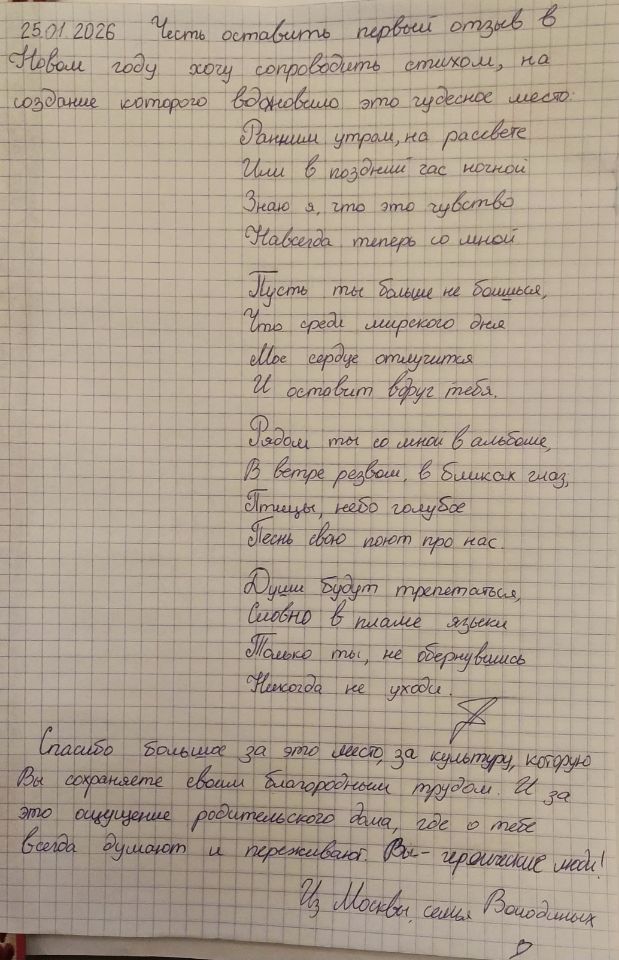 25.01.2026 Честь оставить первый отзыв в
Новом году хочу сопроводить стихом, на
создание которого вдохновило это чудесное место:
Ранним утром, на рассвете
Или в поздний час ночной
Знаю я, что это чувство
Навсегда теперь со мной
Пусть ты больше не боишься,
Что среди мирского дня
Мое сердце отлучится
И оставит вдруг тебя.
Рядом ты со мной в альбоме,
В ветре резвом, в бликах глаз,
Птицы, небо голубое
Песнь свою поют про нас.
Души будут трепетаться,
Словно в пламе языки
Только ты, не обернувшись
Никогда не уходи.
Спасибо большое за это место, за культуру, которую
Вы сохраняете своим благородным трудом. И за
это ощущение родительского дома, где о тебе
всегда думают и переживают. Вы - героические люди!
Из Москвы, семья Володиных